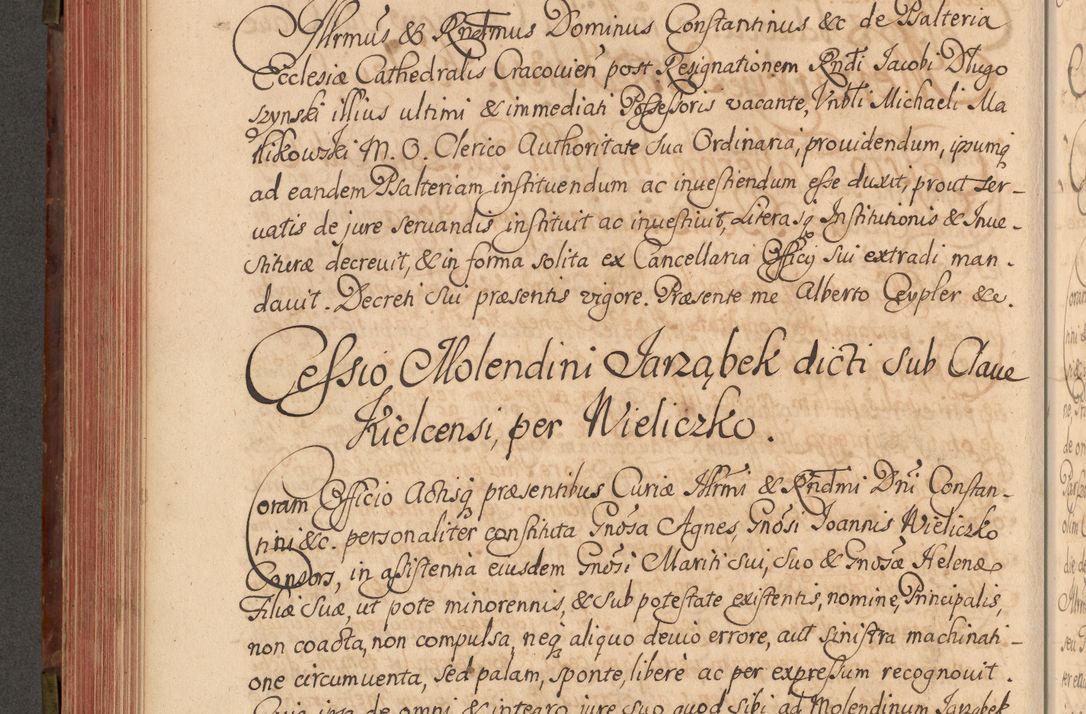 Illrmus & Rndmus Dominus Constantinus &c de Psalteria
Ecclesiæ Cathedralis Cracovien post Resignationem Rndi Jacobi Dlugo
szynski illius ultimi & immediati Possessoris vacante, Vnbli Michaeli Ma
likowski M. O. Clerico Authoritate sua Ordinaria, providendum, ipsumq
ad eandem Psalteriam instituendum ac inuestiendum esse duxit, prout ser-
uatis de jure seruandis instituit ac inuestiuit, Literasq Institutionis & Inue-
stituræ decreuit, & in forma solita ex Cancellaria Officij sui extradi man-
dauit. Decreti sui præsentis vigore. Præsente me Alberto Ceypler &c.
Cessio Molendini Jarząbek dicti sub Claue
Kielcensi, per Wieliczko.
Coram Officio Actisq præsentibus Curiæ Illrmi & Rndmi Dni Constan-
tini &c. personaliter constituta Gnosa Agnes, Gnosi Joannis Wieliczko
Consors, in assistentia eiusdem Gnosi Mariti sui, suo & Gnosæ Helenæ
Filiæ suæ, ut pote minorennis, & sub potestate existentis, nomine, Principalis,
non coacta, non compulsa, neq aliquo deuio errore, aut sinistra machinati-
one circumuenta, sed palam, sponte, libere ac per expressum recognouit.
Quia ipsa de omni & integro jure suo quod sibi ad Molendinum Jarząbek